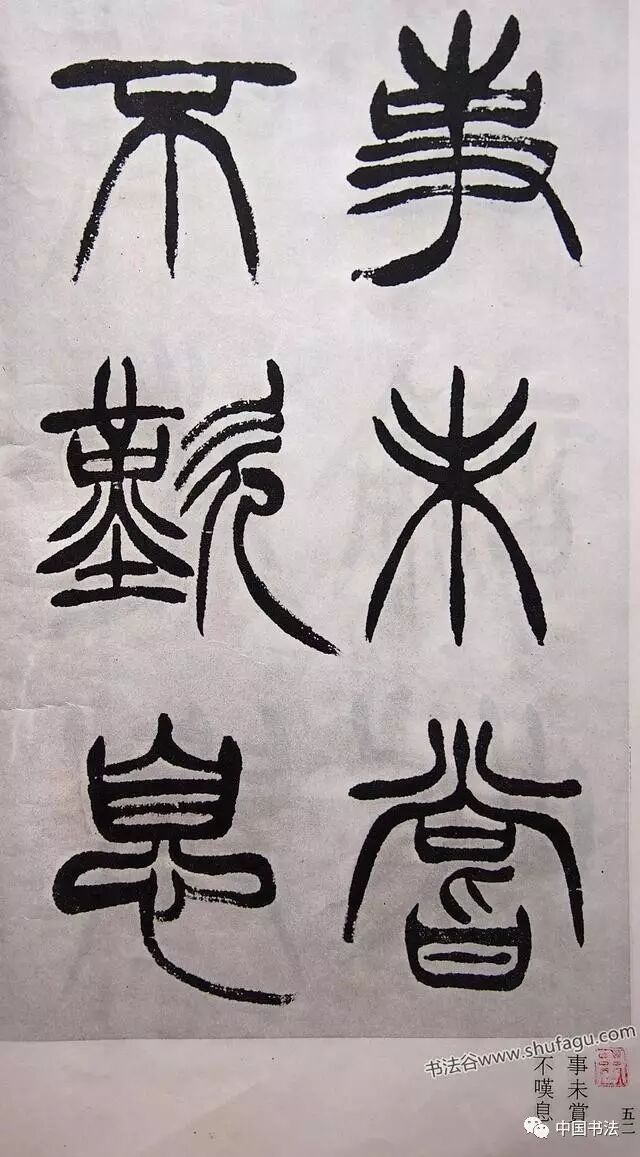 事未嘗
不歎息
书法谷www.shufagu.com
事未嘗
不嘆息
五二
中国书法